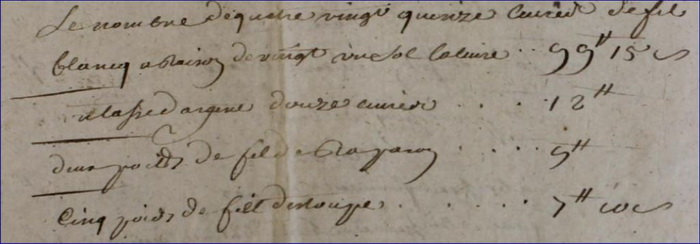 Le nombre de quatre vingt quinze livres de fil
blancq a raison de vingt un sol la livre .. 99# 15 s
tasse d'argent douze livres .... 12#
deux poids de fil de .... 9#
Cinq poids de fil destoupes ..... 7# 10 s